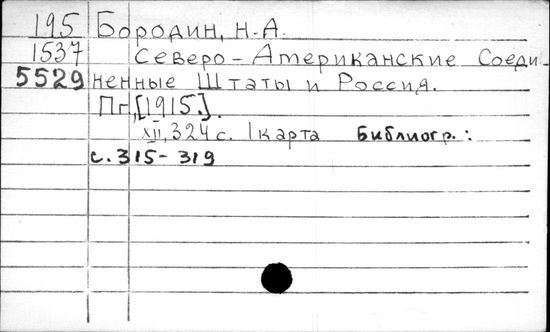 195 Бородин, Н.А.
1537 Северо-Американские Соеди-
5529 ненные Штаты и Россия.
Пг, [1915.].
XII, 324 с. 1 карта Библиогр.:
с. 315-319